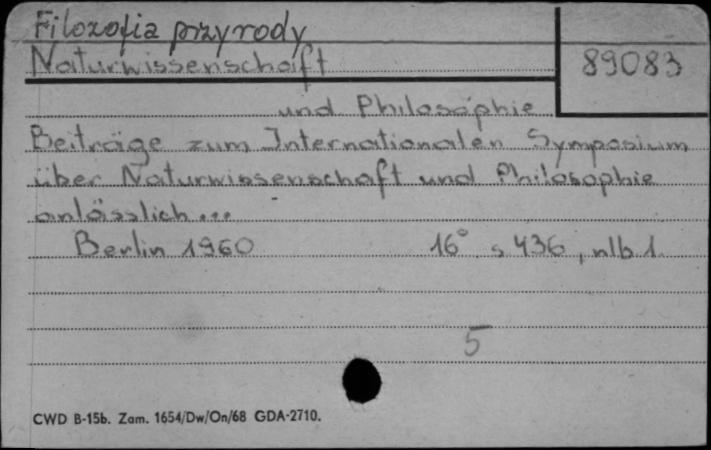 Filozofia przyrody
Naturwissenschaft
89083
und Philosophie
Beiträge zum Internationalen Symposium
über Naturwissenschaft und Philosophie
anlässlich...
Berlin 1960 16° s 436, nlb 1.
5
CWD B-15b. Zam. 1654/Dw/On/68 GDA-2710.